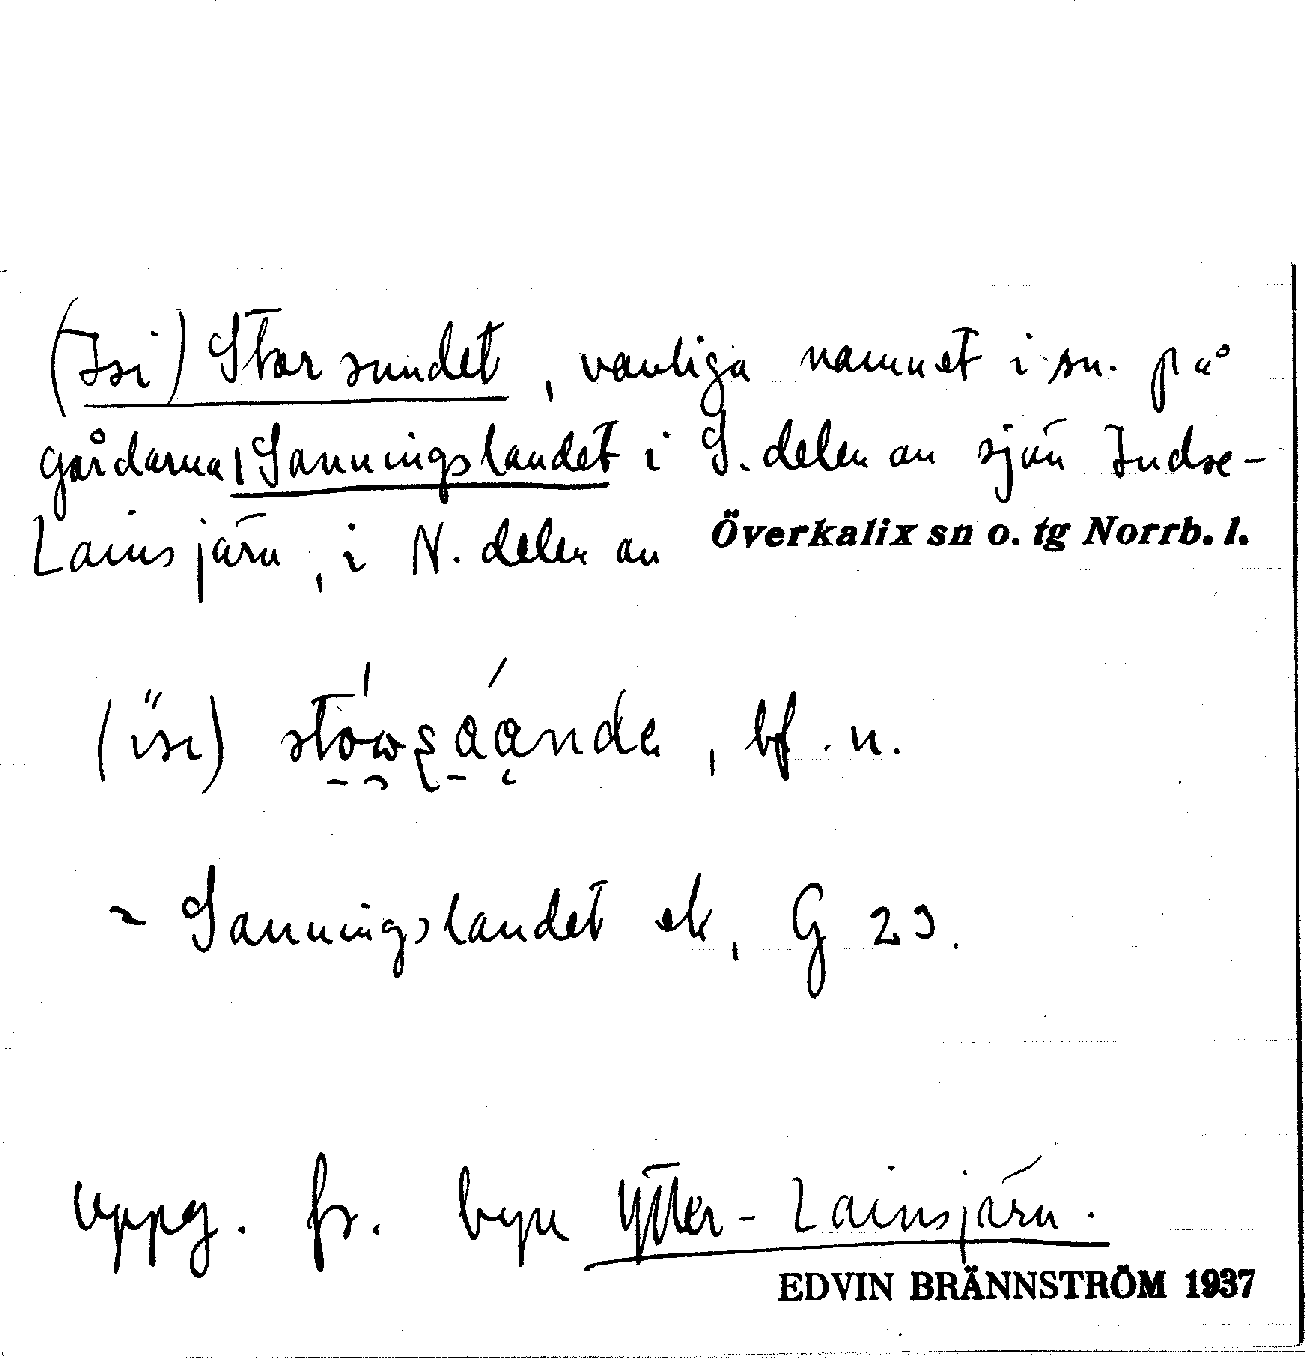 (Isi) Storsundet, vanliga namnet i sn. på
gårdarna Sanningslandet i S. delen av sjön Indre-
Lainsjärv, i N. delen av Överkalix sn o. tg Norrb. l.
bf. n.
= Sanningslandet ek, G 23.
uppg. fr. byn Ytter-Lainsjärv.
EDVIN BRÄNNSTRÖM 1937